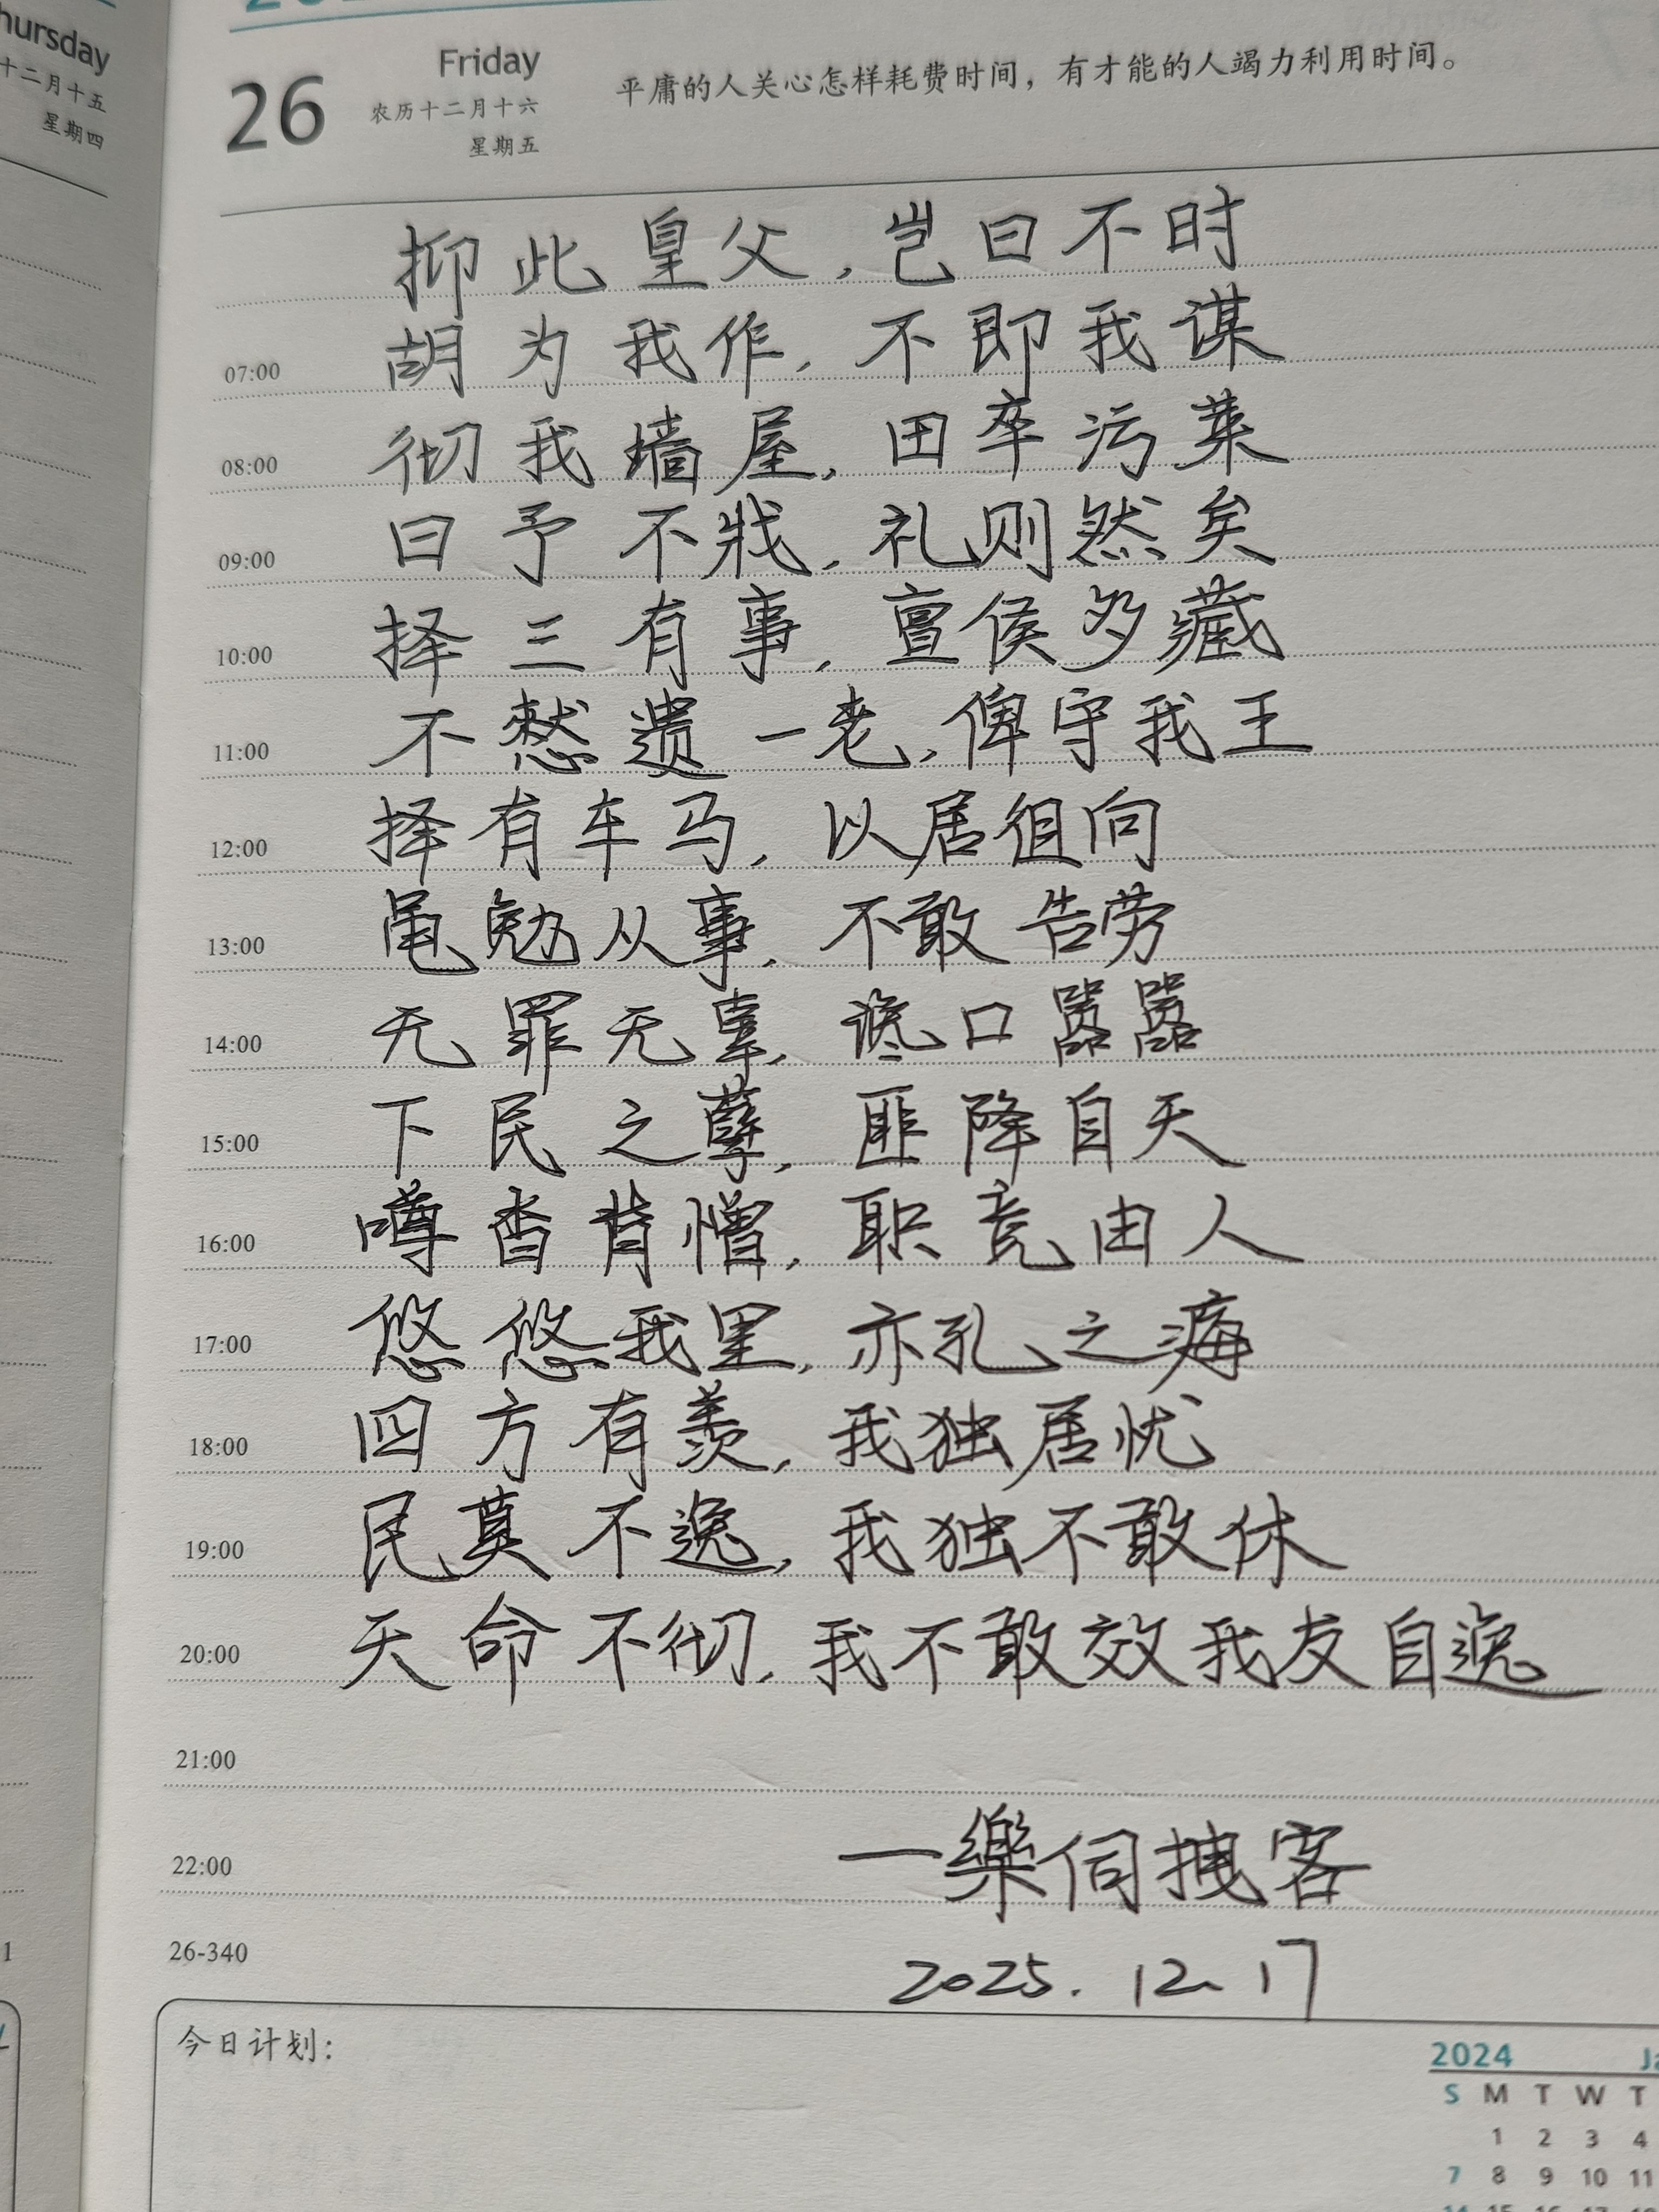 hursday
十二月十五
星期四
26
Friday
农历十二月十六
星期五
平庸的人关心怎样耗费时间，有才能的人竭力利用时间。
抑此皇父，岂曰不时
07:00 胡为我作，不即我谋
08:00 彻我墙屋，田卒污莱
09:00 曰予不戕，礼则然矣
10:00 择三有事，亶侯多藏
11:00 不憖遗一老，俾守我王
12:00 择有车马，以居徂向
13:00 黾勉从事，不敢告劳
14:00 无罪无辜，谗口嚣嚣
15:00 下民之孽，匪降自天
16:00 噂沓背憎，职竞由人
17:00 悠悠我里，亦孔之痗
18:00 四方有羡，我独居忧
19:00 民莫不逸，我独不敢休
20:00 天命不彻，我不敢效我友自逸
21:00
22:00 一樂伺拽客
26-340
2025.12.17
今日计划：
2024 Ja
S M T W T
1 2 3 4
7 8 9 10 11